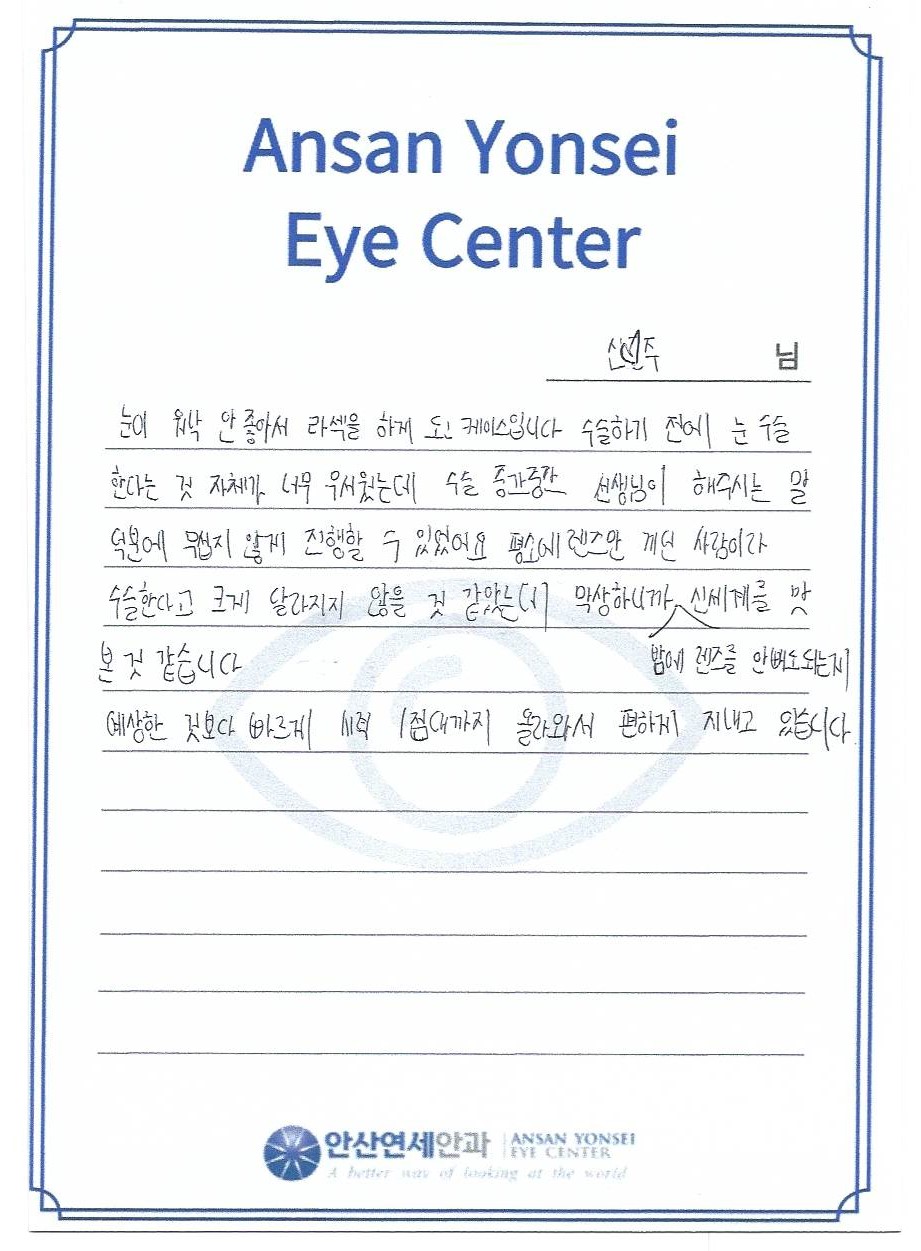 Ansan Yonsei
Eye Center
님
눈이 워낙 안 좋아서 라섹을 하게 된 케이스입니다 수술하기 전에 눈 수술
한다는 것 자체가 너무 무서웠는데 수술 중간중간 선생님이 해주시는 말
덕분에 무섭지 않게 진행할 수 있었어요 평소에 렌즈만 끼던 사람이라
수술한다고 크게 달라지지 않을 것 같았는데 막상하니까 신세계를 맛
본 것 같습니다
밤에 렌즈를 안빼도되는지
예상한 것보다 빠르게 시력 1점대까지 올라와서 편하게 지내고 있습니다.
안산연세안과 ANSAN YONSEI
EYE CENTER
A better way of looking at the world